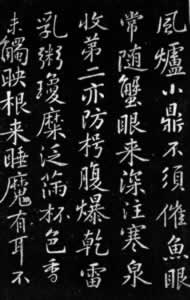 風爐小鼎不須催魚眼
常随蟹眼来深注寒泉
收第二亦防枵腹爆乾雷
乳粥瓊糜泛滿杯色香
未觸映根来睡魔有耳不